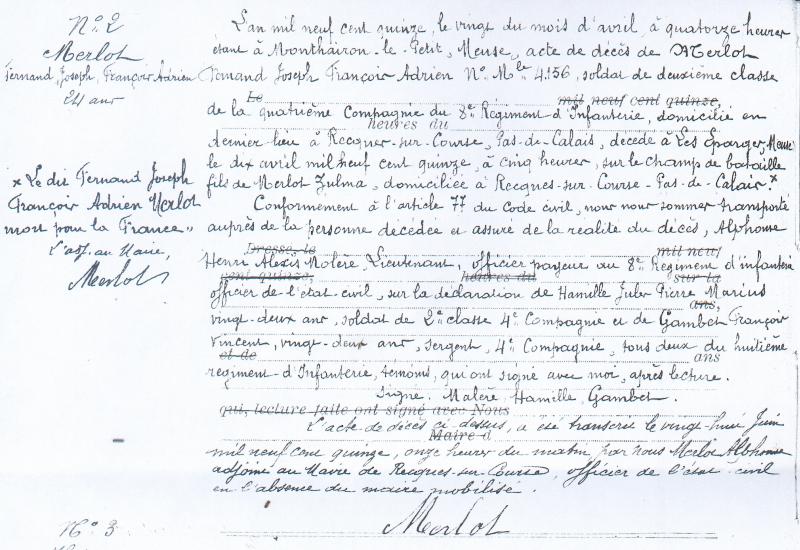 N° 2
Merlot
Fernand, Joseph, François Adrien
24 ans
× Le dit Fernand Joseph
François Adrien Merlot
mort pour la France"
L'adj. au Maire,
Merlot
L'an mil neuf cent quinze, le vingt du mois d'avril, à quatorze heures
étant à Monthairon-le-Petit, Meuse, acte de décès de Merlot
Fernand Joseph François Adrien N° Mle 4.156, soldat de deuxième classe
Le mil neuf cent quinze,
de la quatrième Compagnie du 8e Régiment d'Infanterie, domicilié en
heures du
dernier lieu à Recques-sur-Course, Pas-de-Calais, décédé à Les Eparges, Meuse
le dix avril mil neuf cent quinze, à cinq heures, sur le champ de bataille
fils de Merlot Zulma, domiciliée à Recques-sur-Course-Pas-de-Calais ×
Conformément à l'article 77 du Code civil, nous nous sommes transporté
auprès de la personne décédée et assuré de la réalité du décès, Alphonse
Dressé, le mil neuf
Henri Alexis Molère Lieutenant, officier payeur au 8e Régiment d'infanterie
cent quinze, heures du sur la
officier de l'état-civil, sur la déclaration de Hamille Jules Pierre Marius
ans,
vingt-deux ans, soldat de 2e classe 4e Compagnie et de Gambet François
Vincent, vingt-deux ans, sergent, 4e Compagnie, tous deux du huitième
et de ans
régiment-d'Infanterie, témoins, qui ont signé avec moi, après lecture.
Signé. Malère, Hamille, Gambet.
qui, lecture faite ont signé avec Nous
L'acte de décès ci dessus, a été transcrit le vingt-huit Juin
Maire d
mil neuf cent quinze, onze heures du matin, par nous Merlot Alphonse
adjoint au Maire de Recques-sur-Course, officier de l'état civil
en l'absence du maire mobilisé.
Merlot
N° 3